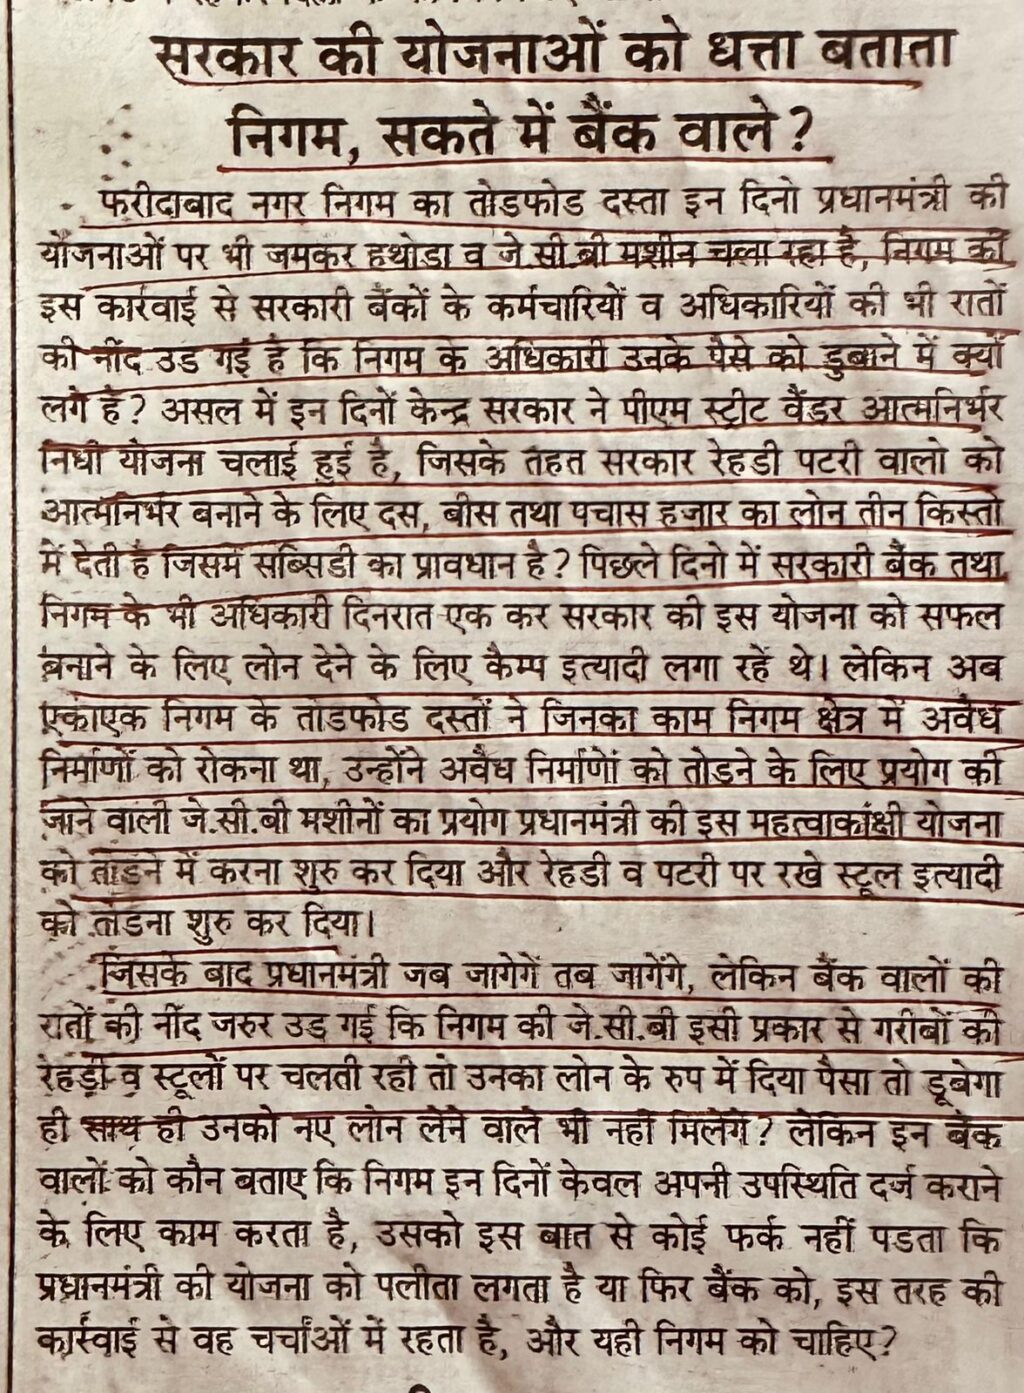 सरकार की योजनाओं को धत्ता बताता
निगम, सकते में बैंक वाले?
फरीदाबाद नगर निगम का तोडफोड दस्ता इन दिनो प्रधानमंत्री की
योजनाओं पर भी जमकर हथोडा व जे.सी.बी मशीन चला रहा है, निगम की
इस कार्रवाई से सरकारी बैंकों के कर्मचारियों व अधिकारियों की भी रातों
की नींद उड गई है कि निगम के अधिकारी उनके पैसे को डुबाने में क्यों
लगे है? असल में इन दिनों केन्द्र सरकार ने पीएम स्ट्रीट वैंडर आत्मनिर्भर
निधी योजना चलाई हुई है, जिसके तहत सरकार रेहडी पटरी वालो को
आत्मनिर्भर बनाने के लिए दस, बीस तथा पचास हजार का लोन तीन किस्तो
में देती है जिसमें सब्सिडी का प्रावधान है? पिछले दिनो में सरकारी बैंक तथा
निगम के भी अधिकारी दिनरात एक कर सरकार की इस योजना को सफल
बनाने के लिए लोन देने के लिए कैम्प इत्यादी लगा रहें थे। लेकिन अब
एकाएक निगम के तोडफोड दस्तों ने जिनका काम निगम क्षेत्र में अवैध
निर्माणों को रोकना था, उन्होंने अवैध निर्माणों को तोडने के लिए प्रयोग की
जाने वाली जे.सी.बी मशीनों का प्रयोग प्रधानमंत्री की इस महत्वाकांक्षी योजना
को तोडने में करना शुरु कर दिया और रेहडी व पटरी पर रखे स्टूल इत्यादी
को तोडना शुरु कर दिया।
जिसके बाद प्रधानमंत्री जब जागेगें तब जागेंगे, लेकिन बैंक वालों की
रातों की नींद जरुर उड गई कि निगम की जे.सी.बी इसी प्रकार से गरीबों की
रेहडी व स्टूलों पर चलती रही तो उनका लोन के रुप में दिया पैसा तो डूबेगा
ही साथ ही उनको नए लोन लेने वाले भी नहीं मिलेंगे? लेकिन इन बैंक
वालों को कौन बताए कि निगम इन दिनों केवल अपनी उपस्थिति दर्ज कराने
के लिए काम करता है, उसको इस बात से कोई फर्क नहीं पडता कि
प्रधानमंत्री की योजना को पलीता लगता है या फिर बैंक को, इस तरह की
कार्रवाई से वह चर्चाओं में रहता है, और यही निगम को चाहिए?